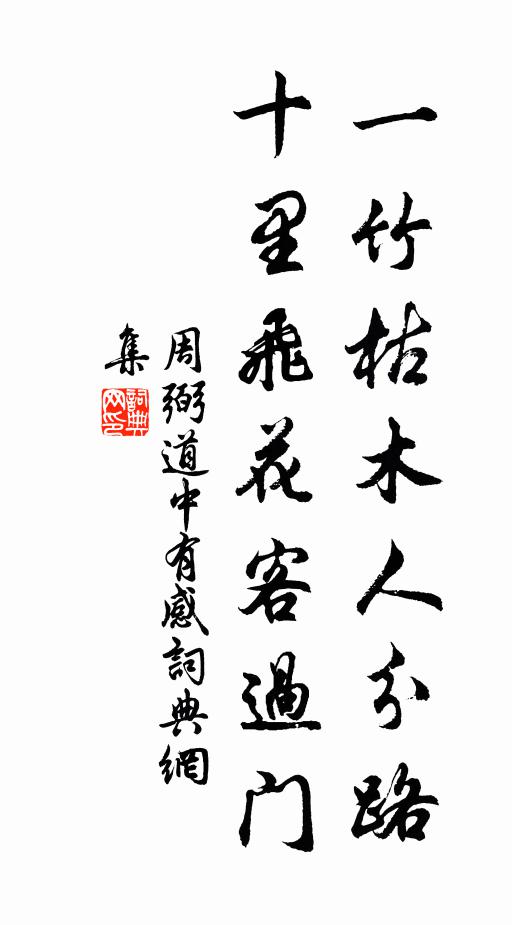 一竹枯木人分路
十里飛花客過门
周弼道中有感詞典網
集
詞典
网印